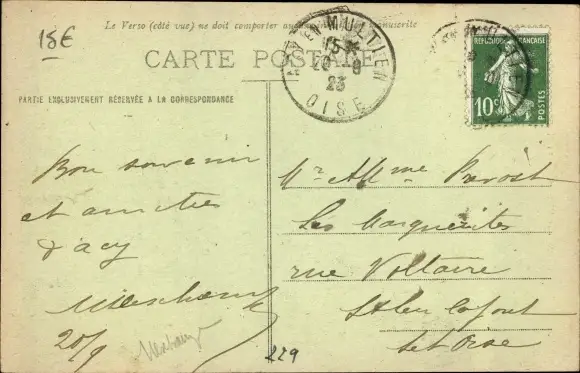 15€
Le Verso (côté vue) ne doit comporter manuscrite
CARTE POSTALE
ACY-EN-MULTIEN
15
20 - 9
23
OISE
REPUBLIQUE FRANÇAISE
10c
POSTES
PARTIE EXCLUSIVEMENT RÉSERVÉE A LA CORRESPONDANCE
Bon souvenir
et amitiés
d'acy
20/9
Mr et Mme Prévost
Les Marguerites
rue Voltaire
St Leu la foret
Set Oise
229